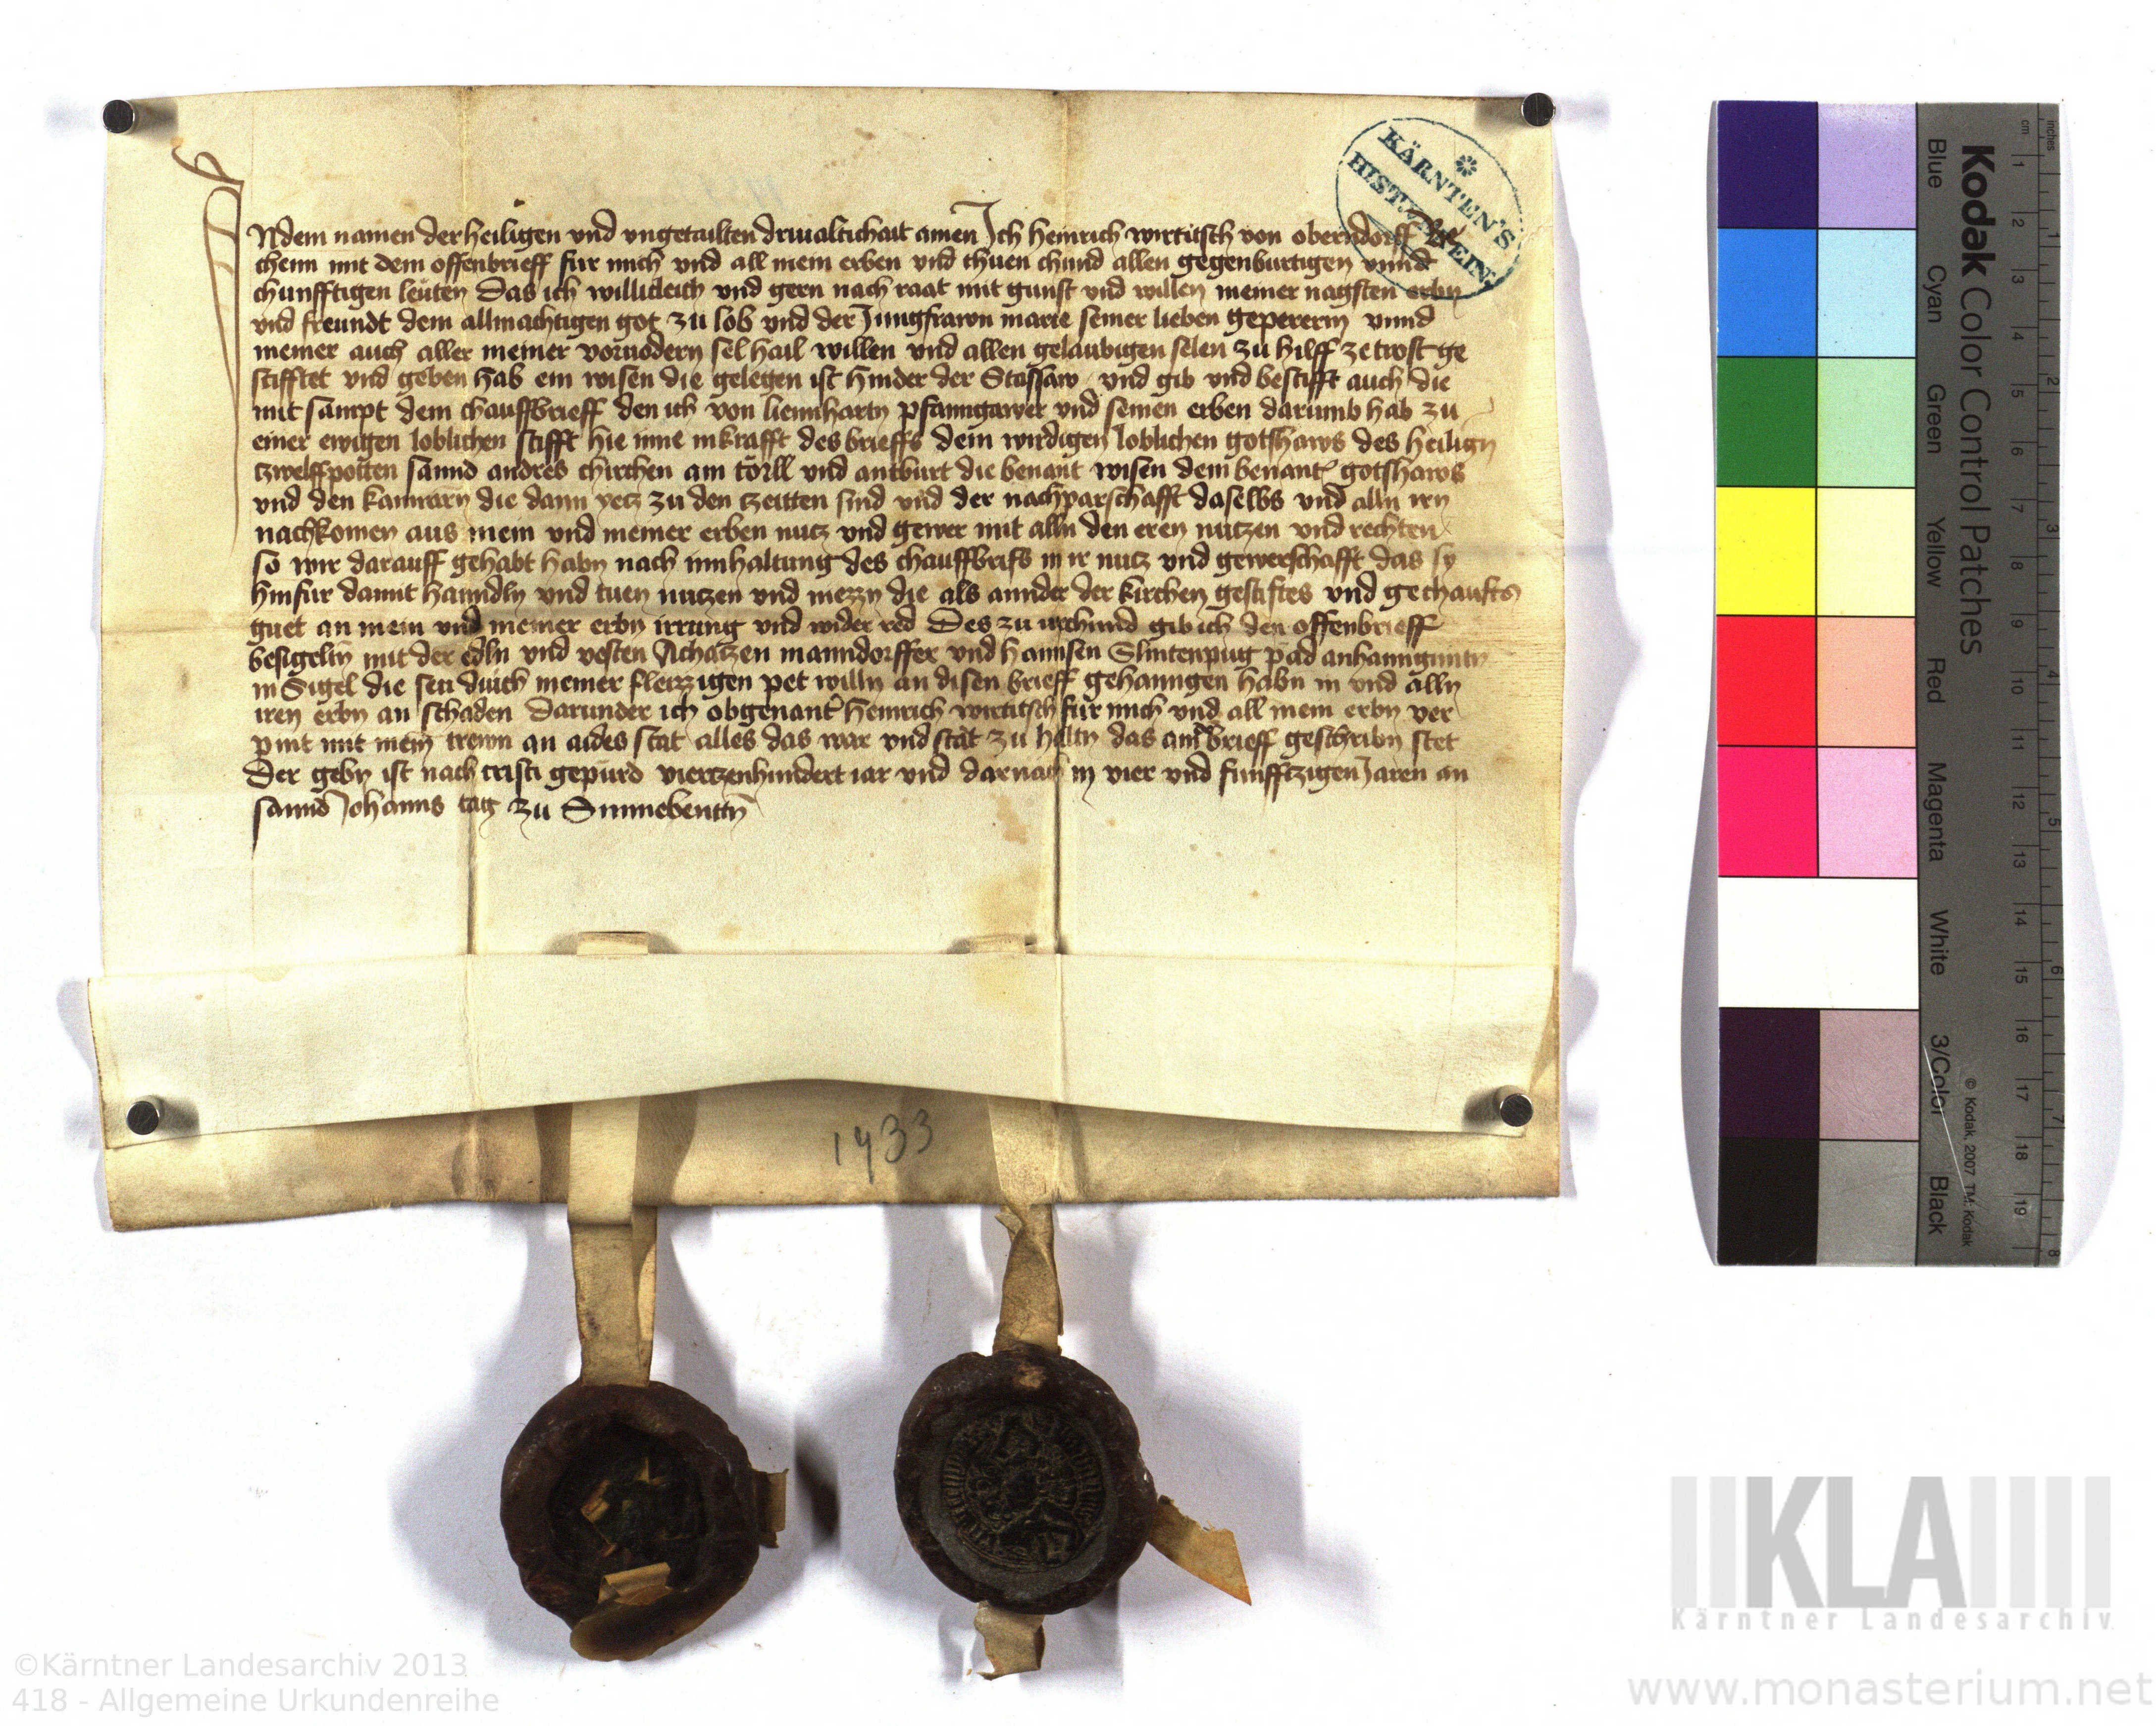 KÄRNTEN'S
HIST. VEREIN
INdem namen der heiligen vnd vngetailten driualtichait amen Ich Heinrich wirtitsch von oberndorff Be
chenn mit dem offenbrieff fur mich vnd all mein erben vnd thuen chund allen gegenburtigen vnnd
chunfftigen leuten Das ich willicleich vnd gern nach raat mit gunst vnd willen meiner nagsten erbn
vnd freundt dem allmachtigen got zu lob vnd der Jungfrawn marie seiner lieben gepererin vnnd
meiner auch aller meiner vornodern sel hail willen vnd allen gelaubigen selen zu hilff ze trost ge
stifftet vnd geben hab ein wisen die gelegen ist hinder der Stossaw vnd gib vnd bestifft auch die
mit sampt dem chauffbrieff den ich von liennhartn pfanngawer vnd seinen erben darumb hab zu
einer ewigen loblichen stifft hie inne inkrafft des brieffs dem wirdigen loblichen gotshaws des heilign
tzwelffpotten sannd andres chirchen am torll vnd antburt die benant wisen dem benant gotshaws
vnd den kamrarn die dann yetz zu den tzeitten sind vnd der nachparschafft daselbs vnd alln irn
nachkomen aus mein vnd meiner erben nutz vnd gewer mit alln den eren nutzen vnd rechten
so wir darauff gehabt habn nach innhaltung des chauffbrifs in ir nutz vnd gewerschafft das sy
hinfur damit hanndln vnd tuen nutzen vnd niezzn die als annder der kirchen gestiftes vnd gechaufts
guet an mein vnd meiner erbn irrung vnd wider red Des zu vrchund gib ich den offenbrieff
besigeltn mit der edln vnd vesten Achatzen manndorffer vnd hannsen Slintenpug paid anhanngunttn
in Sigel die seu durch meiner fleizzigen pet willn an disen brieff gehanngen habn in vnd alln
iren erbn an schaden Darunder ich obgenant heinrich wirtitsch fur mich vnd all mein erbn ver
pint mit mein trewn an aides stat alles das war vnd stat zu haltn das am brieff geschribn stet
Der gebn ist nach cristi gepurd viertzenhundert iar vnd darnach in vier vnd funfftzigen Jaren an
sannd Johanns tag zu Sunnebenttn
1433
Kodak Color Control Patches
Blue Cyan Green Yellow Red Magenta White 3/Color Black
© Kodak, 2007 TM: Kodak
cm 1 2 3 4 5 6 7 8 9 10 11 12 13 14 15 16 17 18 19
inches 1 2 3 4 5 6 7 8
KLA
Kärntner Landesarchiv
©Kärntner Landesarchiv 2013
418 - Allgemeine Urkundenreihe
www.monasterium.net